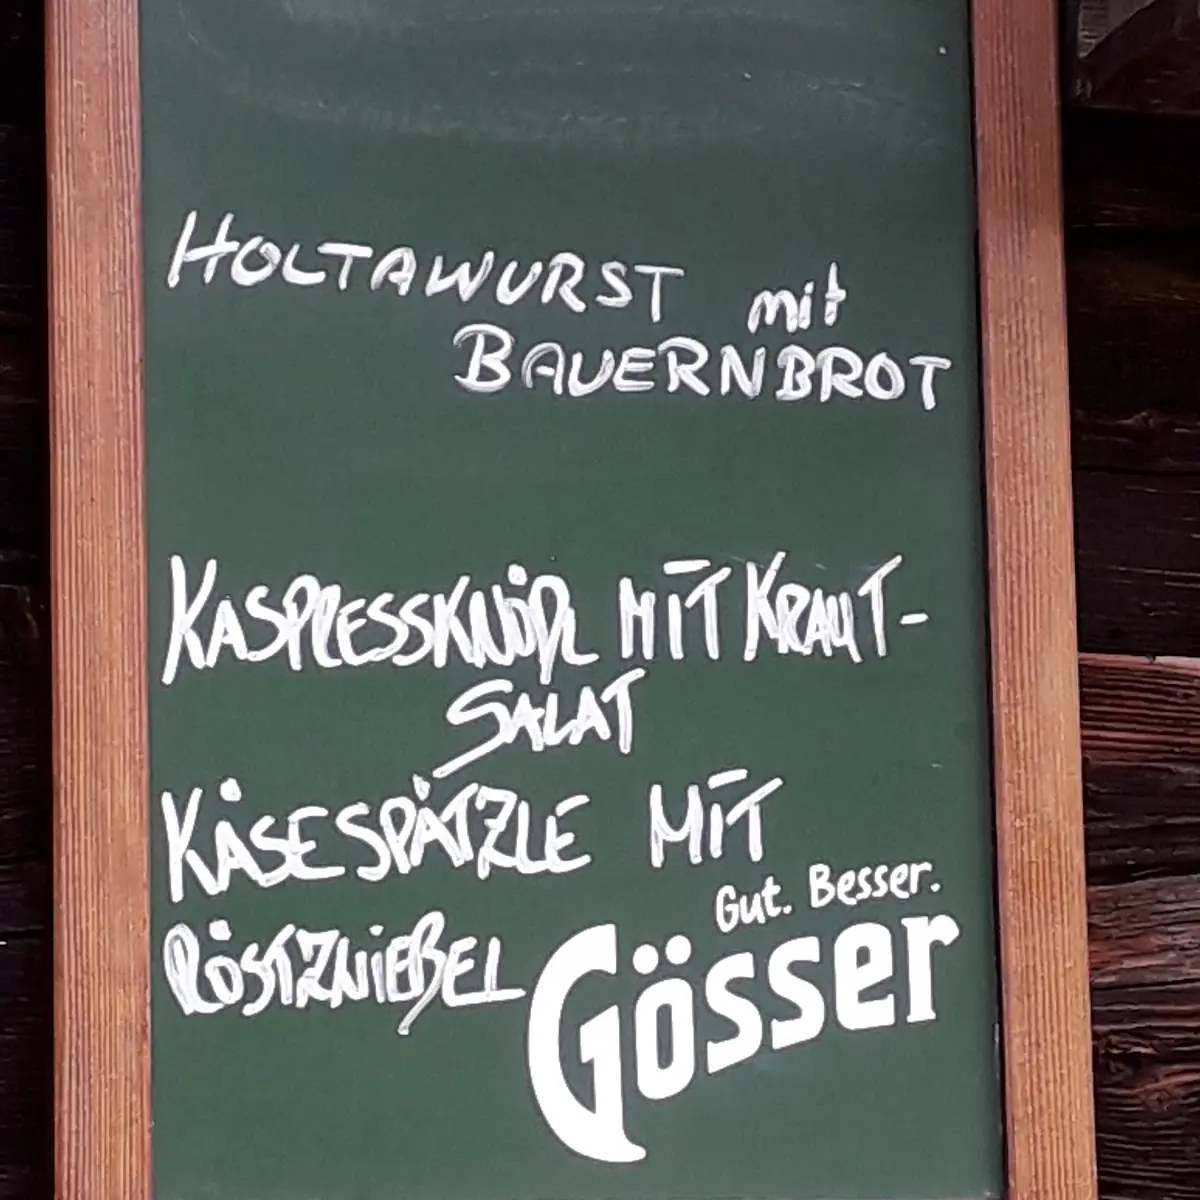 HOLTAWURST mit
BAUERNBROT
KASPRESSKNÖDL MIT KRAUT-
SALAT
KÄSESPÄTZLE MIT
RÖSTZWIEBEL
Gut. Besser.
Gösser